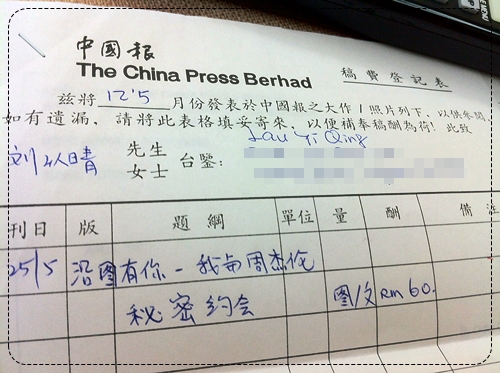 中國報
The China Press Berhad
稿費登記表
茲將 12'5 月份發表於中國報之大作/照片列下，以供參閱，
如有遺漏，請將此表格填妥寄來，以便補奉稿酬為荷！此致
Lau Yi Qing
刘以晴 先生 女士 台鑒：
刊日 版 題綱 單位 量 酬 備註
25/5 沿图有你-我与周杰伦
秘密约会 图/文 RM 60.